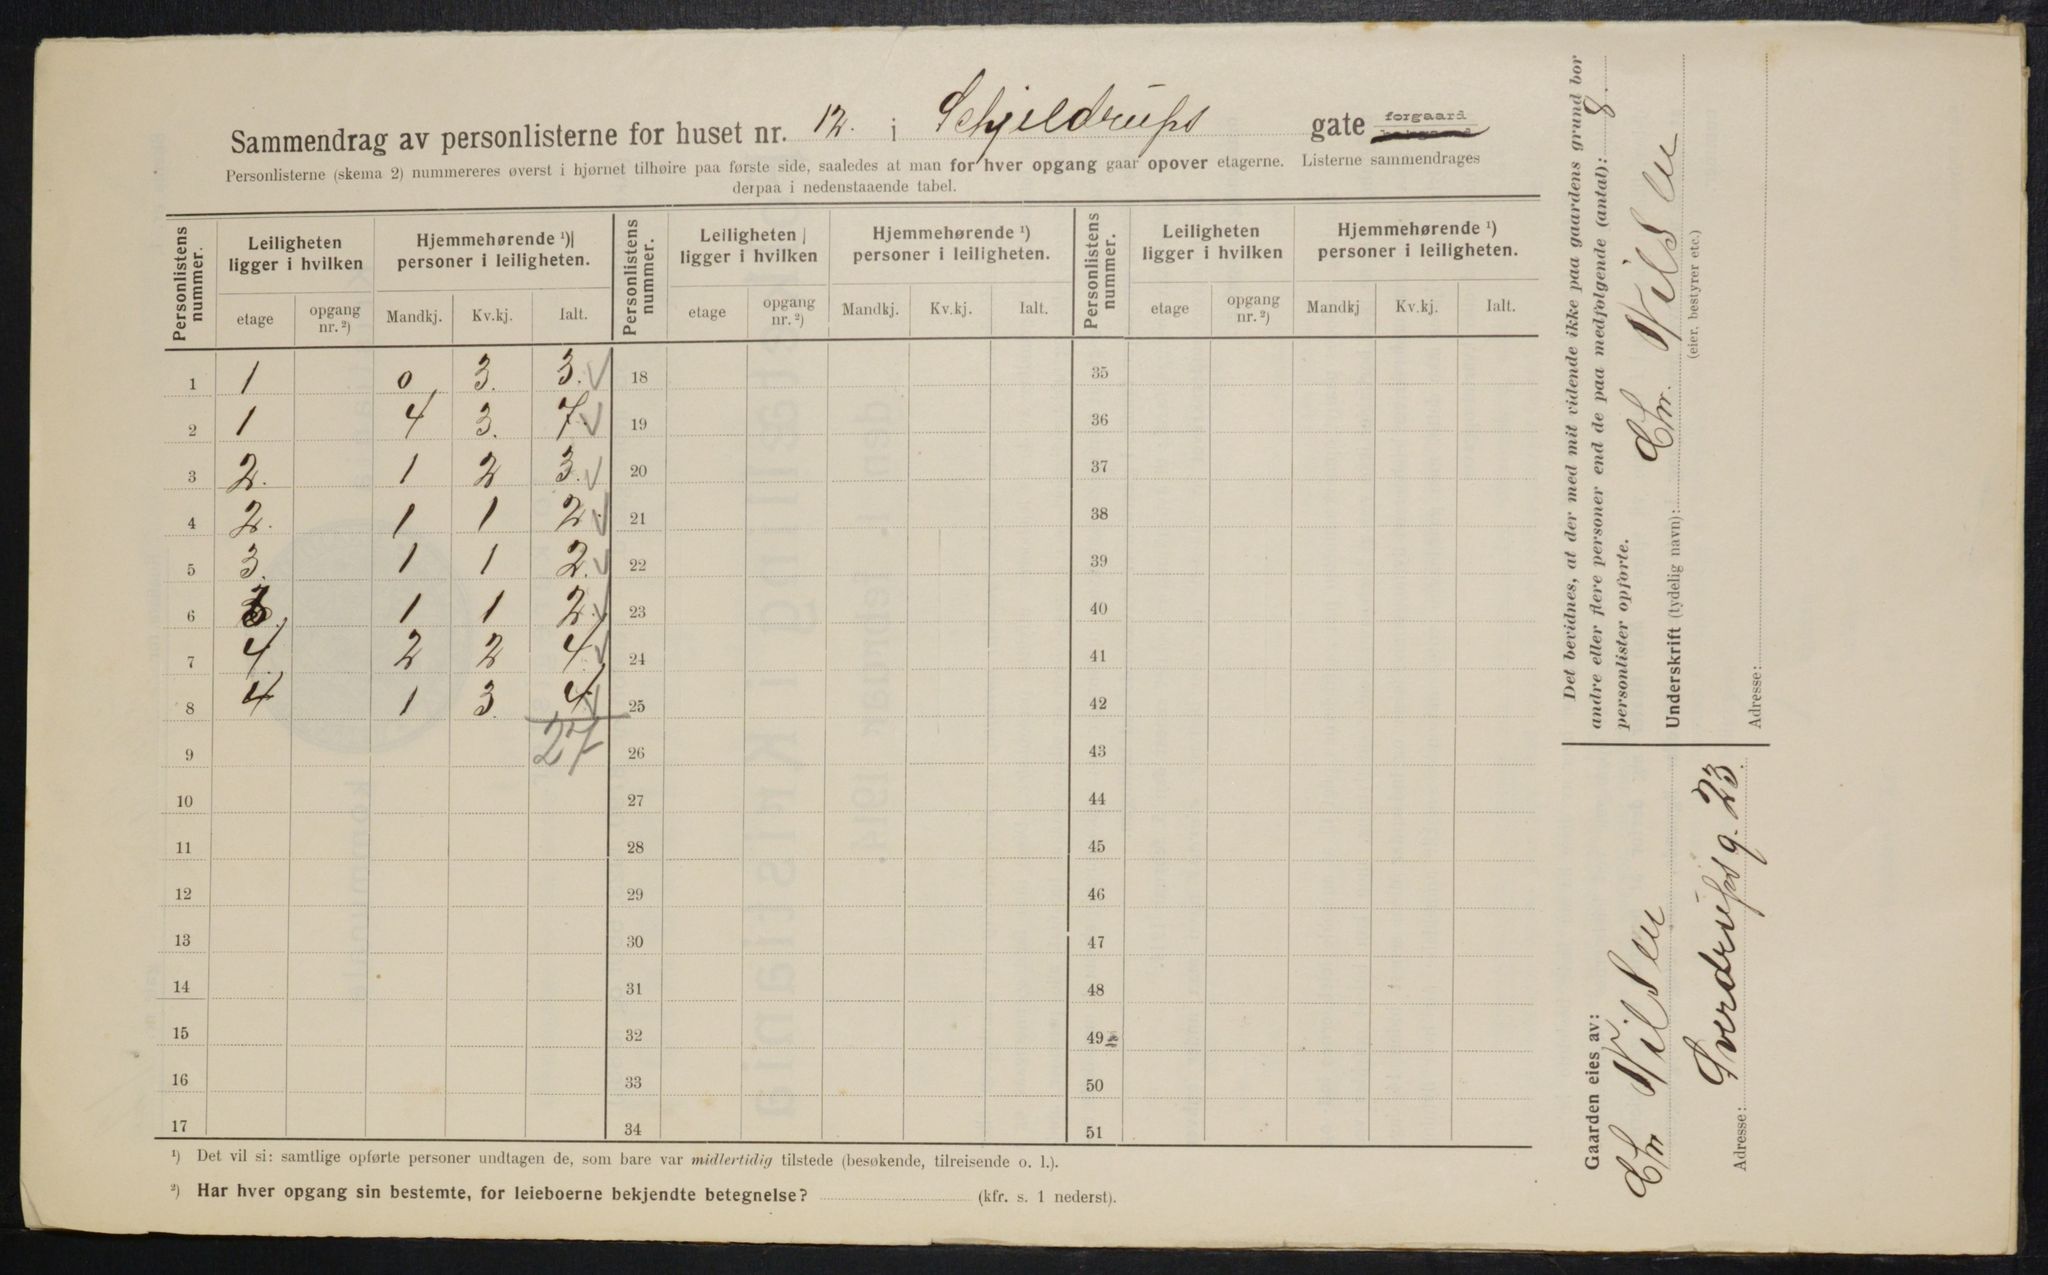 Sammendrag av personlisterne for huset nr. 12. i Schjeldrups gate forgaard
Personlisterne (skema 2) nummereres øverst i hjørnet tilhøire paa første side, saaledes at man for hver opgang gaar opover etagerne. Listerne sammendrages
derpaa i nedenstaaende tabel.
Personlistens nummer. Leiligheten ligger i hvilken Hjemmehørende ¹) personer i leiligheten. Personlistens nummer. Leiligheten ligger i hvilken Hjemmehørende ¹) personer i leiligheten. Personlistens nummer. Leiligheten ligger i hvilken Hjemmehørende ¹) personer i leiligheten.
etage opgang nr. ²) Mandkj. Kv.kj. Ialt. etage opgang nr. ²) Mandkj. Kv.kj. Ialt. etage opgang nr. ²) Mandkj Kv.kj. Ialt.
1 1 0 3. 3. 18 35
2 1 4 3. 7. 19 36
3 2. 1 2 3. 20 37
4 2. 1 1 2. 21 38
5 3. 1 1 2. 22 39
6 3. 1 1 2. 23 40
7 4. 2 2 4. 24 41
8 4 1 3. 4. 25 42
9 27 26 43
10 27 44
11 28 45
12 29 46
13 30 47
14 31 48
15 32 49
16 33 50
17 34 51
¹) Det vil si: samtlige opførte personer undtagen de, som bare var midlertidig tilstede (besøkende, tilreisende o. l.).
²) Har hver opgang sin bestemte, for leieboerne bekjendte betegnelse? (kfr. s. 1 nederst).
Det bevidnes, at der med mit vidende ikke paa gaardens grund bor
andre eller flere personer end de paa medfølgende (antal): 8.
personlister opførte.
Underskrift (tydelig navn): Chr. Nilsen
(eier, bestyrer etc.)
Adresse:
Gaarden eies av:
Chr Nilsen
Adresse: Sverdrupsg. 23.